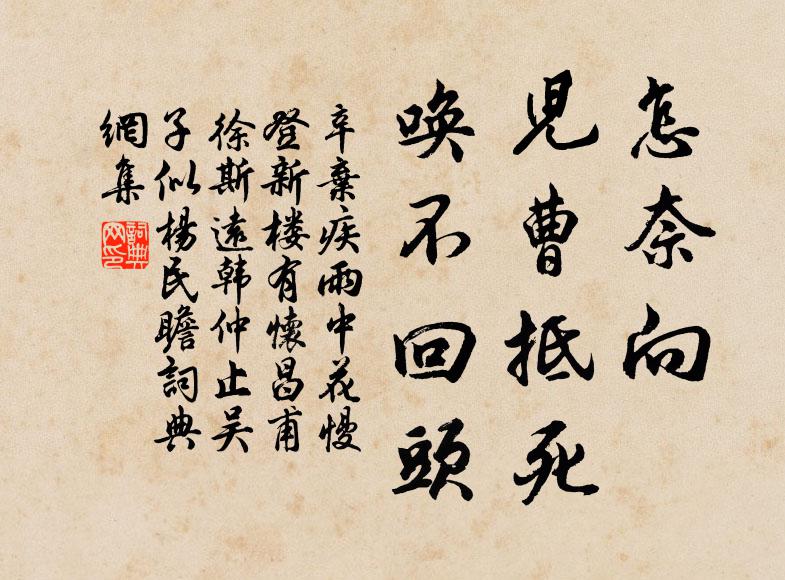 怎奈向
児曹抵死
喚不回頭
辛棄疾雨中花慢
登新楼有懷昌甫
徐斯遠韩仲止吴
子似楊民瞻詞典
網集
詞典
网印